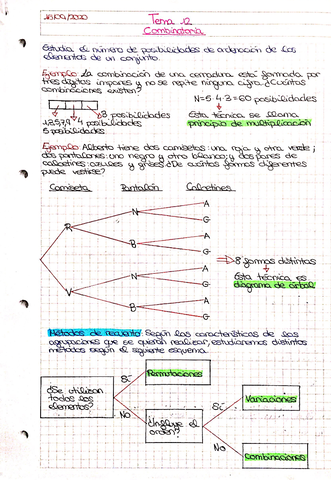 28/09/2020
Tema 12
Combinatoria
Estudia el número de posibilidades de ordenación de los
elementos de un conjunto.
Ejemplo: La combinación de una cerradura está formada por
tres dígitos impares y no se repite ninguna cifra. ¿Cuántas
combinaciones existen?
N=5·4·3=60 posibilidades
3 posibilidades
1,3,5,7,9 4 posibilidades
5 posibilidades
Esta técnica se llama
principio de multiplicación
Ejemplo: Alberto tiene dos camisetas: una roja y otra verde;
dos pantalones: uno negro y otro blanco; y dos pares de
calcetines: azules y grises. ¿De cuántas formas diferentes
puede vestirse?
Camiseta Pantalón Calcetines
A
N
G
R
A
B
G
8 formas distintas
A
N
G
Esta técnica es
diagrama de árbol
V
A
B
G
Métodos de recuento: Según las características de las
agrupaciones que se quieran realizar, estudiaremos distintos
métodos según el siguiente esquema.
Sí
Permutaciones
¿Se utilizan
todos los
elementos?
No
¿Influye el
orden?
Sí
Variaciones
No
Combinaciones